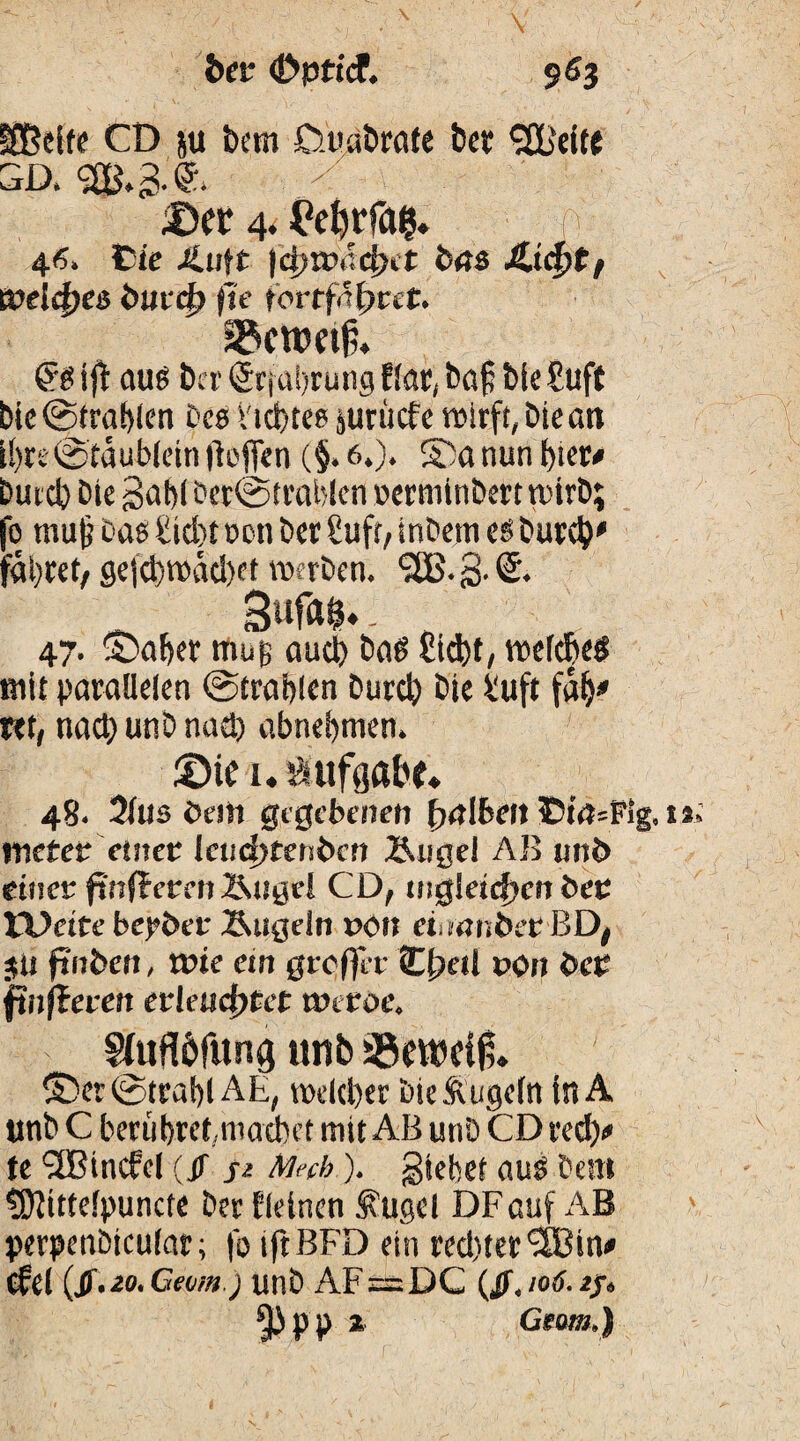 der Optick. 963
Weite CD zu dem Quadrate der Weite
GD. W.Z.E.
Der 4. Lehrsatz.
46. Die Luft schwächet das Licht,
welches durch sie fortfähret.
Beweiß.
Es ist aus der Erfahrung klar, daß die Luft
die Strahlen des Lichtes zurücke wirft, die an
ihre Stäublein stossen (§. 6.). Da nun hier-
durch die Zahl der Strahlen vermindert wird;
so muß das Licht von der Luft, indem es durch-
fähret, geschwächet werden. W.Z.E.
Zusatz.
47. Daher muß auch das Licht, welches
mit parallelen Strahlen durch die Luft fäh-
ret, nach und nach abnehmen.
Die 1. Aufgabe.
48. Aus dem gegebenen halben Dia- Fig. 12.
meter einer leuchtenden Kugel AB und
einer finsteren Kugel CD, ingleichen der
Weite beyder Kugeln von einander BD,
zu finden, wie ein grosser Theil von der
finsteren erleuchtet werde.
Auflösung und Beweiß.
Der Strahl AE, welcher die Kugeln in A
und C berühret, machet mit AB und CD rech-
te Winckel (§ 52 Mech.). Ziehet aus dem
Mittelpuncte der kleinen Kugel DF auf AB
perpendicular; so ist BFD ein rechter Win-
ckel (§. 20. Geom.) und AF=DC (§. 106. 25.
Ppp 2 Geom.)